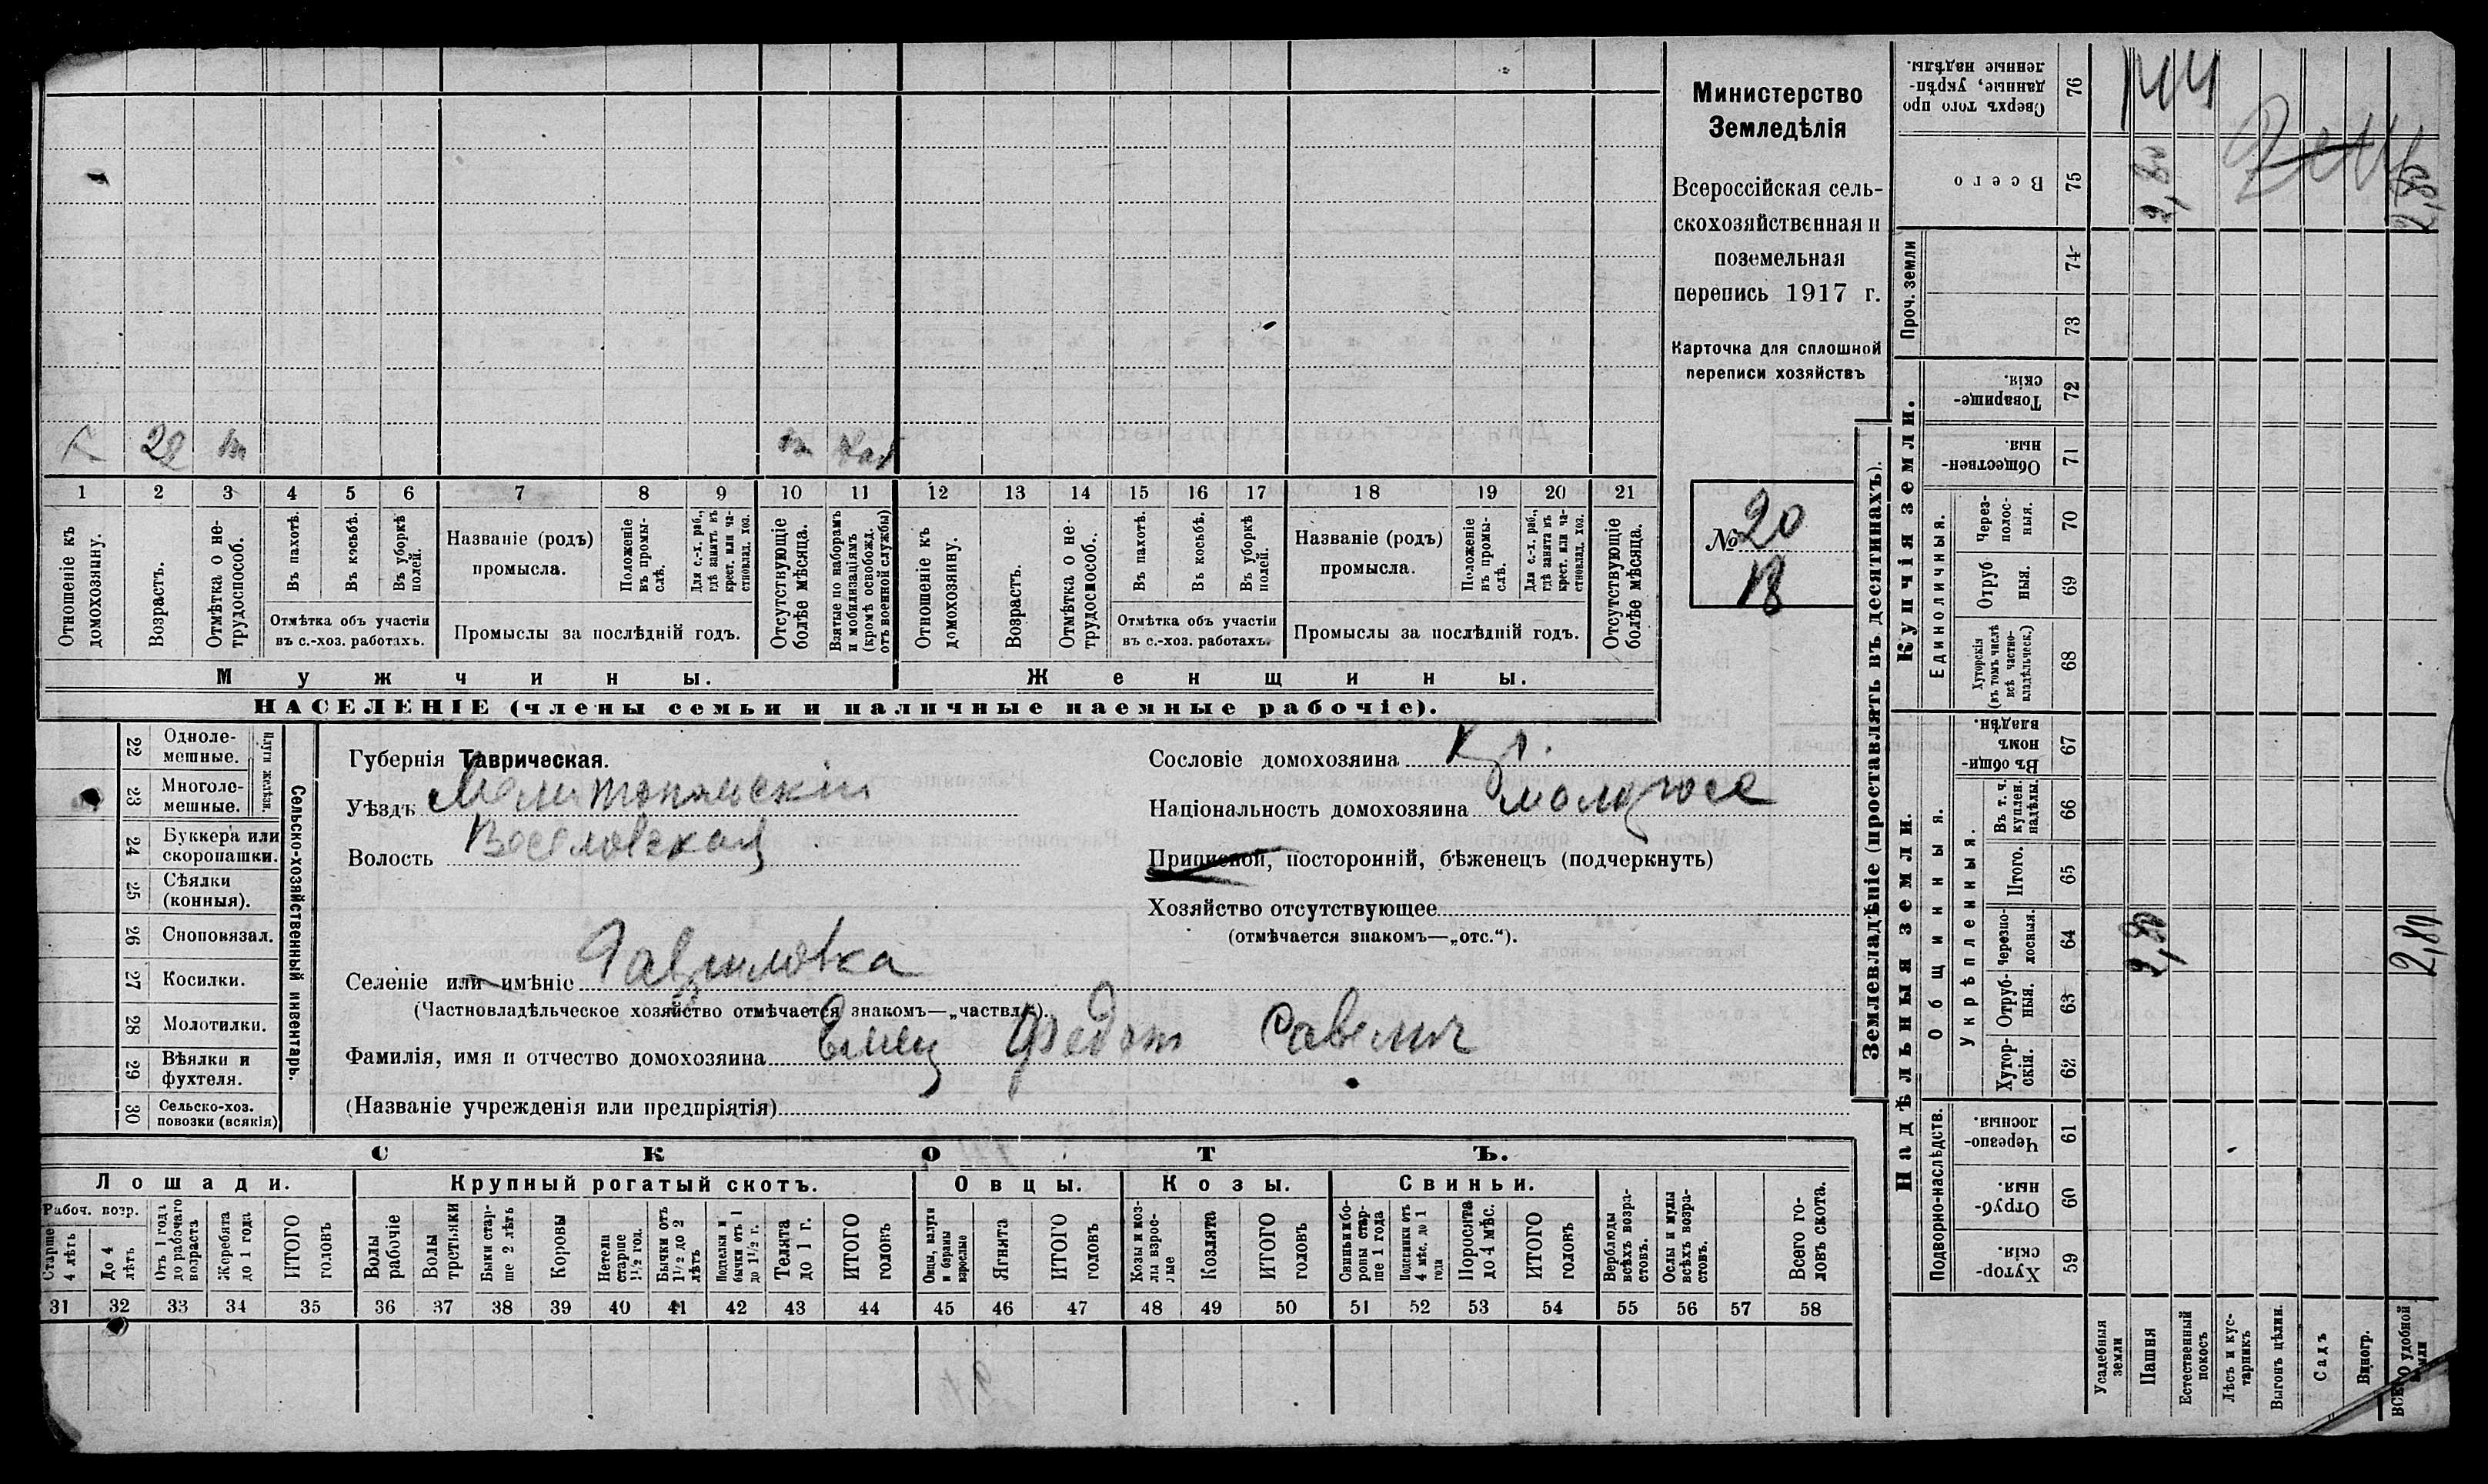 Министерство
Земледѣлія
Всероссійская сель-
скохозяйственная и
поземельная
перепись 1917 г.
Карточка для сплошной
переписи хозяйствъ
№ 20
18
22 2м м
1 2 3 4 5 6 7 8 9 10 11 12 13 14 15 16 17 18 19 20 21
Отношеніе къ домохозяину.
Возрастъ.
Отмѣтка о не-трудоспособ.
Въ пахотѣ.
Въ косьбѣ.
Въ уборкѣ полей.
Отмѣтка объ участіи
въ с.-хоз. работахъ.
Названіе (родъ)
промысла.
Положеніе въ промы-слѣ.
Для с.-х. раб., гдѣ занятъ въ крест. или ча-стновлад. хоз.
Промыслы за послѣдній годъ.
Отсутствующіе болѣе мѣсяца.
Взятые по наборамъ и мобилизаціямъ (кромѣ освобожд. отъ военной службы)
Отношеніе къ домохозяину.
Возрастъ.
Отмѣтка о не-трудоспособ.
Въ пахотѣ.
Въ косьбѣ.
Въ уборкѣ полей.
Отмѣтка объ участіи
въ с.-хоз. работахъ.
Названіе (родъ)
промысла.
Положеніе въ промы-слѣ.
Для с.-х. раб., гдѣ занята въ крест. или ча-стновлад. хоз.
Промыслы за послѣдній годъ.
Отсутствующіе болѣе мѣсяца.
Мужчины. Женщины.
НАСЕЛЕНІЕ (члены семьи и наличные наемные рабочіе).
22 Одноле-мешные.
23 Многоле-мешные.
Плуги желѣзн.
24 Буккера или скоропашки.
25 Сѣялки (конныя).
26 Сноповязал.
27 Косилки.
28 Молотилки.
29 Вѣялки и фухтеля.
30 Сельско-хоз. повозки (всякія)
Сельско-хозяйственный инвентарь.
Губернія Таврическая.
Уѣздъ Мелитопольскій
Волость Веселовская
Селеніе или имѣніе Гавриловка
(Частновладѣльческое хозяйство отмѣчается знакомъ—„частвл.“).
Фамилія, имя и отчество домохозяина Емец Федот Савелич
(Названіе учрежденія или предпріятія)
Сословіе домохозяина Кр.
Національность домохозяина малорос
Приписной, посторонній, бѣженецъ (подчеркнуть)
Хозяйство отсутствующее
(отмѣчается знакомъ—„отс.“).
СКОТЪ.
Лошади. Крупный рогатый скотъ. Овцы. Козы. Свиньи.
Рабоч. возр.
Старше 4 лѣтъ
До 4 лѣтъ
Отъ 1 года до рабочаго возраста
Жеребята до 1 года
ИТОГО головъ
Волы рабочіе
Волы третьяки
Быки стар-ше 2 лѣтъ
Коровы
Нетели старше 1½ год.
Бычки отъ 1½ до 2 лѣтъ
Подтелки и бычки отъ 1 до 1½ г.
Телята до 1 г.
ИТОГО головъ
Овцы, валухи и бараны взрослые
Ягнята
ИТОГО головъ
Козы и коз-лы взрос-лые
Козлята
ИТОГО головъ
Свиньи и бо-ровы стар-ше 1 года
Подсвинки отъ 4 мѣс. до 1 года
Поросята до 4 мѣс.
ИТОГО головъ
Верблюды всѣхъ возра-стовъ.
Ослы и мулы всѣхъ возра-стовъ.
Всего го-ловъ скота.
31 32 33 34 35 36 37 38 39 40 41 42 43 44 45 46 47 48 49 50 51 52 53 54 55 56 57 58
Землевладѣніе (проставлять въ десятинахъ).
Надѣльныя земли. Купчія земли. Проч. земли
Подворно-наслѣдств.
Общинныя.
Укрѣпленныя.
Единоличныя.
Сверхъ того про данные, укрѣп-ленные надѣлы. 76
Всего 75 2,80 2,80
74
73
Товарище-скія. 72
Обществен-ныя. 71
Через-полос-ныя. 70
Отруб ныя. 69
Хуторскія (въ томъ числѣ всѣ частно-владѣльческ.) 68
Въ общи-номъ владѣн. 67
Въ т. ч. куплен. надѣлы. 66
Итого. 65
Черезпо-лосныя. 64 2,80 2,80
Отруб-ныя. 63
Хутор-скія. 62
Черезпо-лосныя 61
Отруб-ныя. 60
Хутор-скія. 59
Усадебныя земли
Пашня
Естественный покосъ
Лѣсъ и кус-тарникъ
Выгонъ цѣлин.
Садъ
Виногр.
ВСЕГО удобной земли